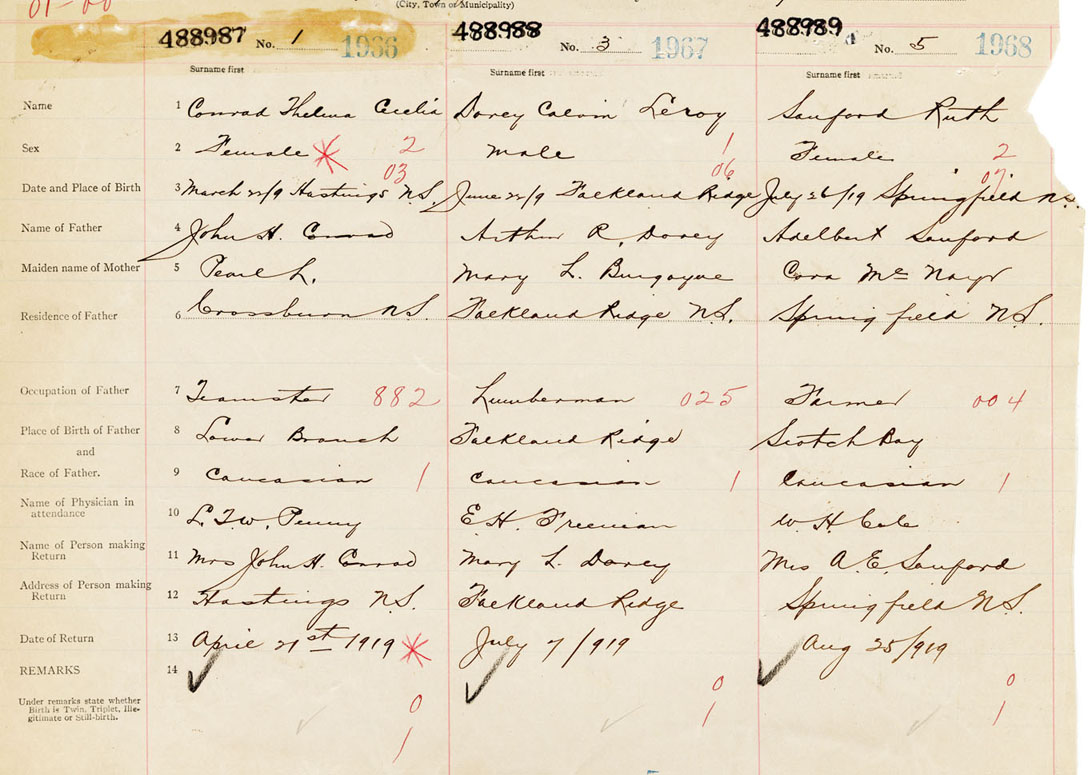 01-00
(City, Town or Municipality)
488987 No. 1 1966 488988 No. 3 1967 488989 No. 5 1968
Surname first Surname first Surname first
Name 1 Conrad Thelma Cecelia Dorey Calvin Leroy Sanford Ruth
Sex 2 Female * 2 male 1 Female 2
03 06 07
Date and Place of Birth 3 March 22/9 Hastings N.S. June 22/9 Falkland Ridge July 26/19 Springfield N.S.
Name of Father 4 John H. Conrad Arthur R. Dorey Adelbert Sanford
Maiden name of Mother 5 Pearl L. Mary L. Burgoyne Cora McNayr
Residence of Father 6 Crossburn N.S. Falkland Ridge N.S. Springfield N.S.
Occupation of Father 7 Teamster 882 Lumberman 025 Farmer 004
Place of Birth of Father 8 Lower Branch Falkland Ridge Scotch Bay
and
Race of Father. 9 Caucasian 1 Caucasian 1 Caucasian 1
Name of Physician in
attendance 10 Penny E. H. Freeman W. H. Cole
Name of Person making
Return 11 Mrs John H. Conrad Mary L. Dorey Mrs A. E. Sanford
Address of Person making
Return 12 Hastings N.S. Falkland Ridge Springfield N.S.
Date of Return 13 April 21st 1919 * July 7/919 Aug 25/919
REMARKS 14 ✓ ✓ ✓
Under remarks state whether
Birth is Twin, Triplet, Ille-
gitimate or Still-birth.
0 0 0
1 1 1